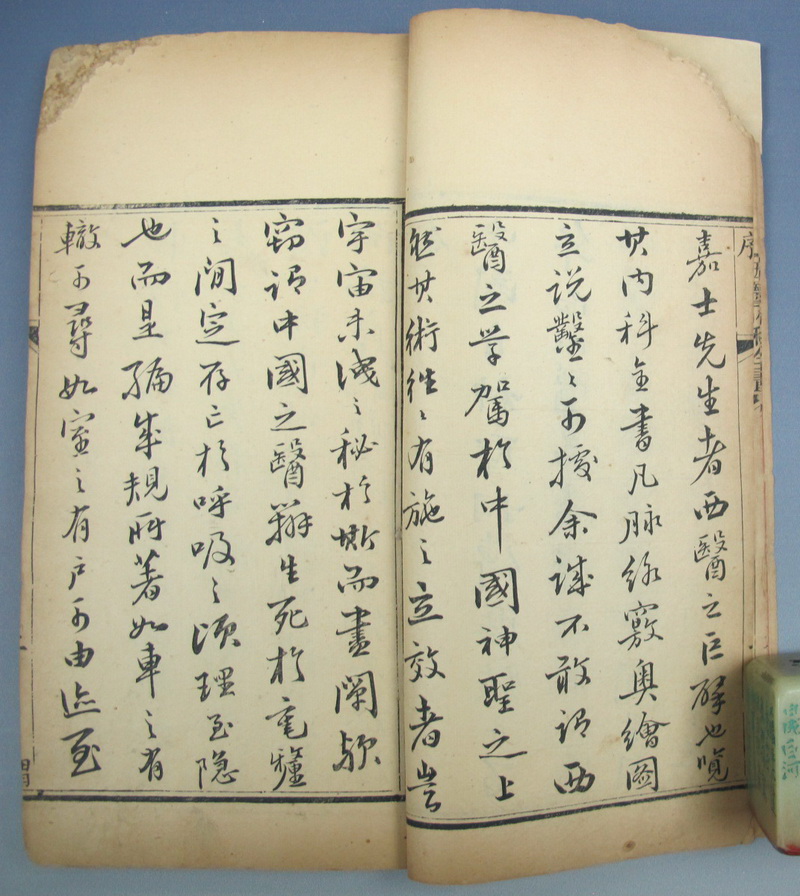 序
嘉士先生者西醫之巨擘也覽
其内科全書凡脉絡竅奥繪圖
立説鑿〻可據余誠不敢謂西
醫之學駕於中國神聖之上
然其術往〻有施之立效者豈
宇宙未洩之秘於斯而盡闡歟
竊謂中國之醫辨生死於毫釐
之間定存亡於呼吸之頃理至隐
也而是編成規所著如車之有
轍可尋如室之有户可由迹至